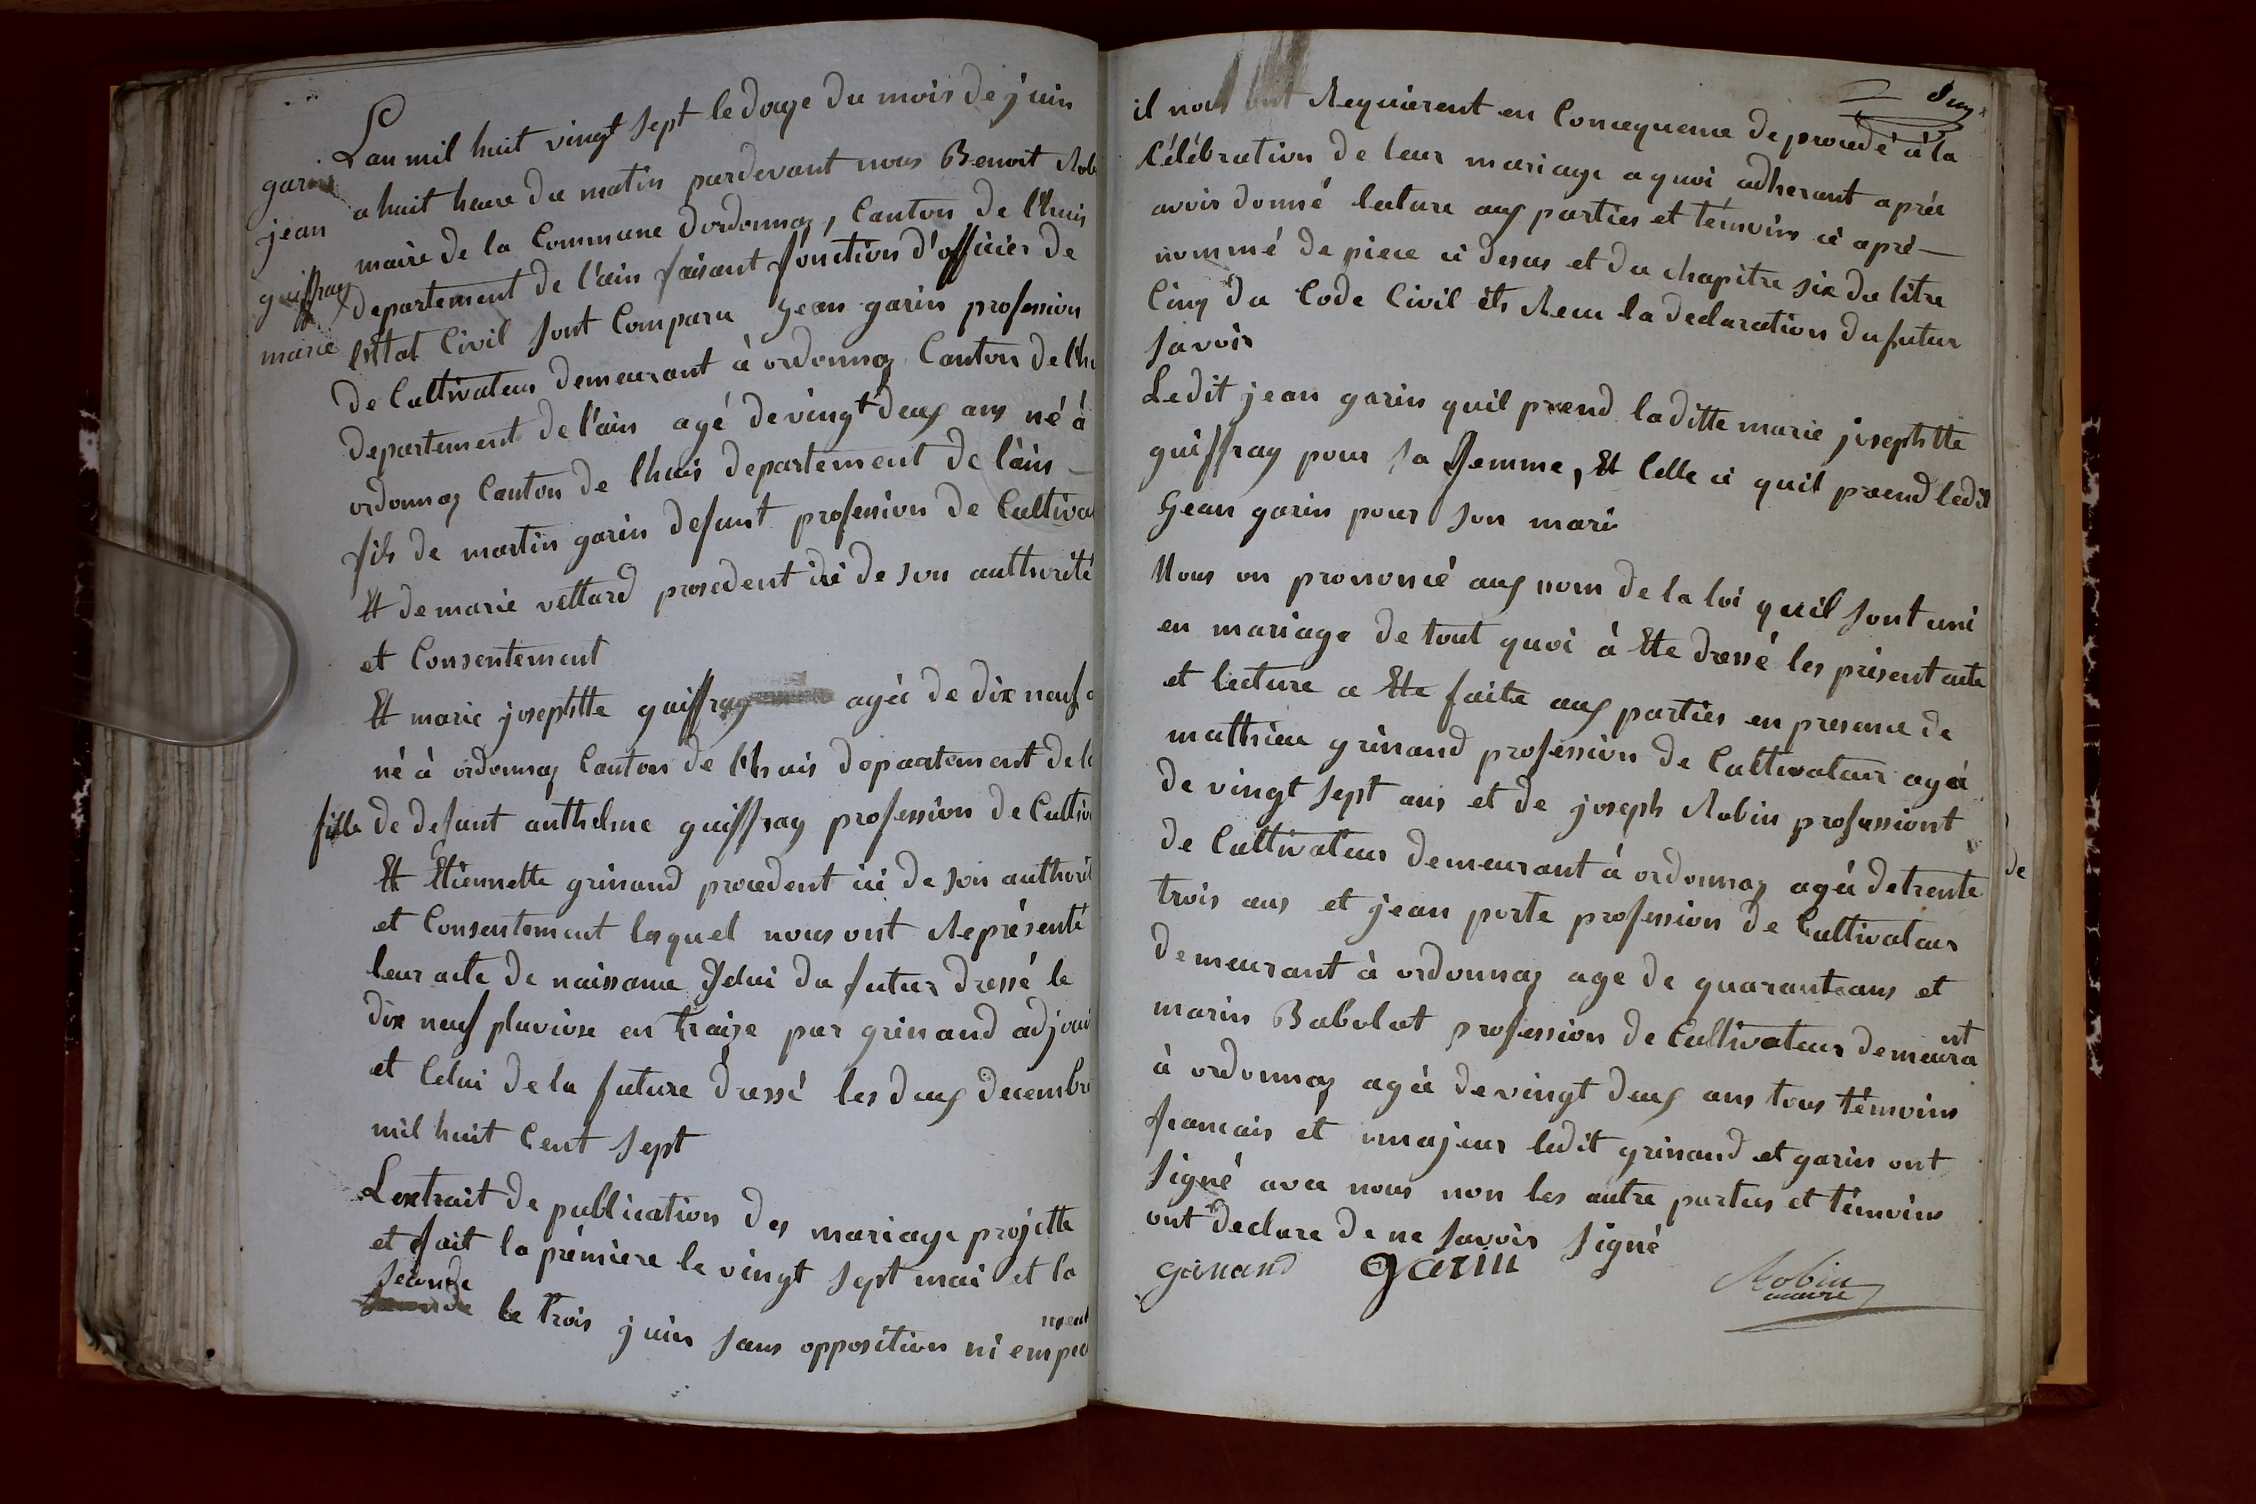 Lan mil huit vingt sept le douze du mois de juin
a huit heure du matin pardevant nous Benoit Rob
maire de la Commune dordonnaz, Canton de lhuis
departement de l'ain faisant fonction d'officier de
lettat Civil sont Comparu jean garin profession
de Cultivateur demeurant à ordonnaz Canton de lhu
departement de l'ain agé de vingt deux ans né à
ordonnaz Canton de lhuis departement de l'ain
fils de martin garin defunt profession de Cultivat
Et de marie vettard procedent ici de son authorité
et Consentement
Et marie josephtte guiffray agée de dix neuf a
né à ordonnaz Canton de lhuis departement de la
fille de defunt anthelme guiffray profession de Cultiv
Et Etiennette grinand procedent ici de son authorit
et Consentement lesquel nous ont Représenté
leur acte de naissance Celui du futur dressé le
dix neuf pluviose en traize par grinand adjoui
et Celui de la future dressé les deux decembre
mil huit Cent sept
Lextrait de publication des mariage projette
et fait la prémiere le vingt sept mai et la
seconde le trois juin sans opposition ni empec
ment
garin
jean
guiffray
marie
il nous ont Requierent en Consequence de procedé à la
Célébration de leur mariage a quoi adherant aprèe
avoir donné lecture aux parties et témoins ci aprè
nommé de piece ci desus et du chapitre six du litre
Cinq du Code Civil ets Recu la declaration du futur
savoir
Ledit jean garin quil prend laditte marie josephtte
guiffray pour sa femme, Et Celle ci quil prend ledit
Jean garin pour son mari
Nous on prononcé aux nom de la loi quil sont uni
en mariage de tout quoi à Ette dressé les présent acte
et lecture a Ette faite aux parties en presence de
mathieu grinand profession de Cultivateur agée
de vingt sept ans et de joseph Robin professiont
de Cultivateur demeurant à ordonnaz agée de trente
trois ans et jean porte profession de Cultivateur
demeurant à ordonnaz age de quarante ans et
marin Babolat profession de Cultivateur demeura
nt
à ordonnaz agée de vingt deux ans tous témoins
francais et majeur ledit grinand et garin ont
signé avec nous non les autre parties et témoins
ont declare de ne savoir signé
Grinand garin Robin
maire
de